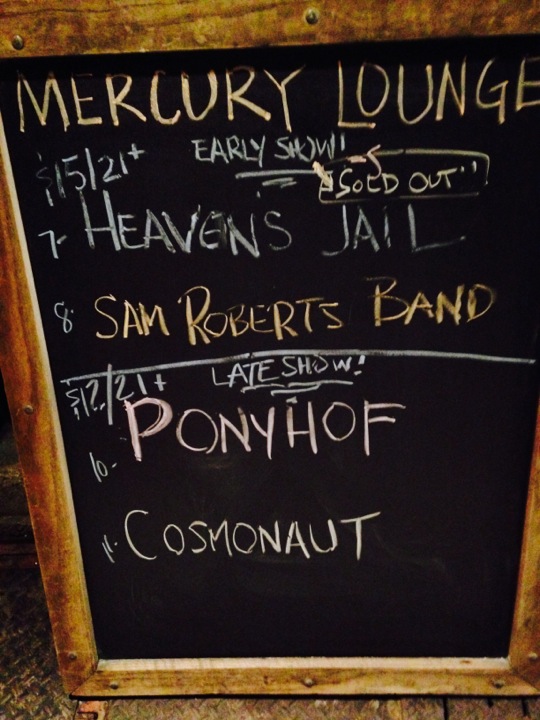 MERCURY LOUNGE
$15/21+ EARLY SHOW!
"SOLD OUT"
7- HEAVEN'S JAIL
8- SAM ROBERTS BAND
$12/21+ LATE SHOW!
10- PONYHOF
11- COSMONAUT